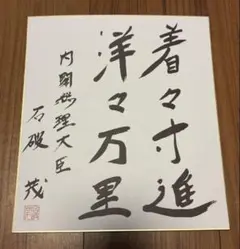 着々寸進
洋々万里
内閣総理大臣
石破 茂